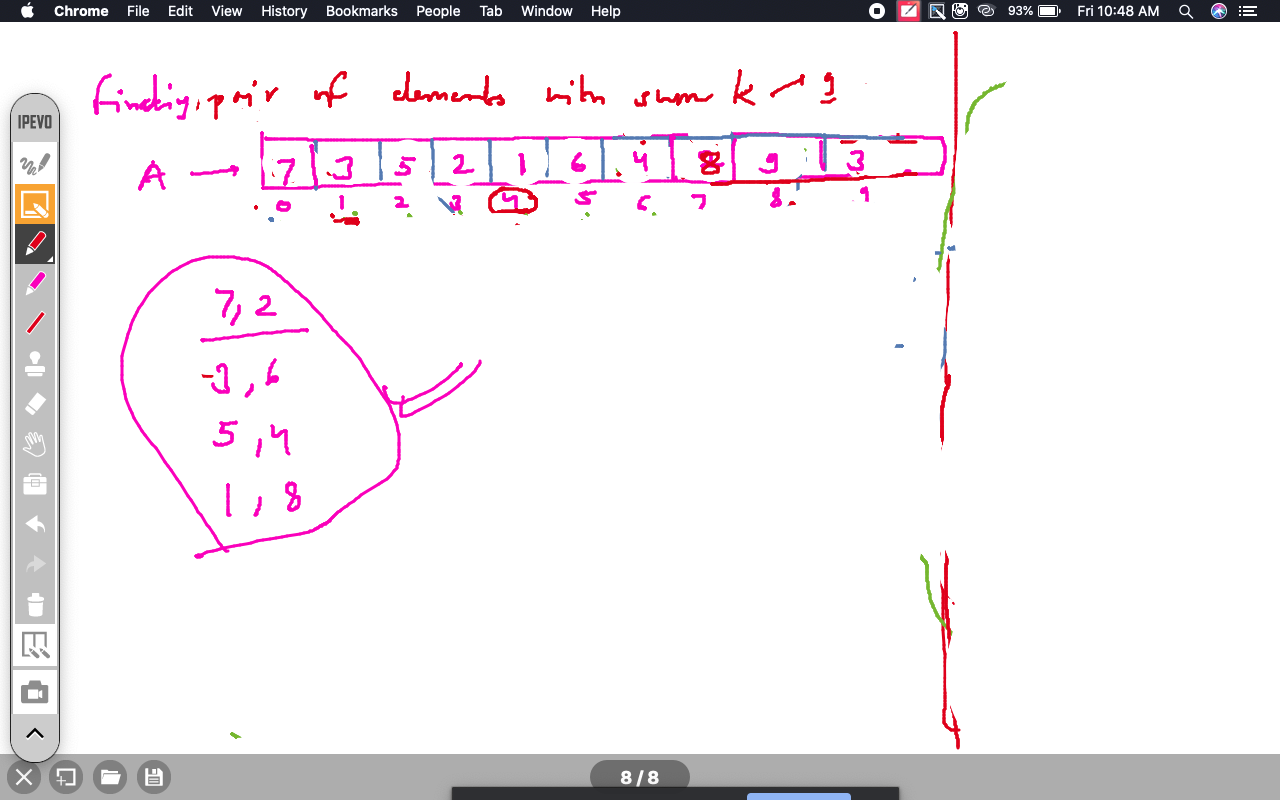 Chrome File Edit View History Bookmarks People Tab Window Help 93% Fri 10:48 AM
finding pair of elements with sum k 9
IPEVO
A → 7 3 5 2 1 6 4 8 9 3
0 1 2 3 4 5 6 7 8 9
7, 2
3, 6
5, 4
1, 8
8 / 8